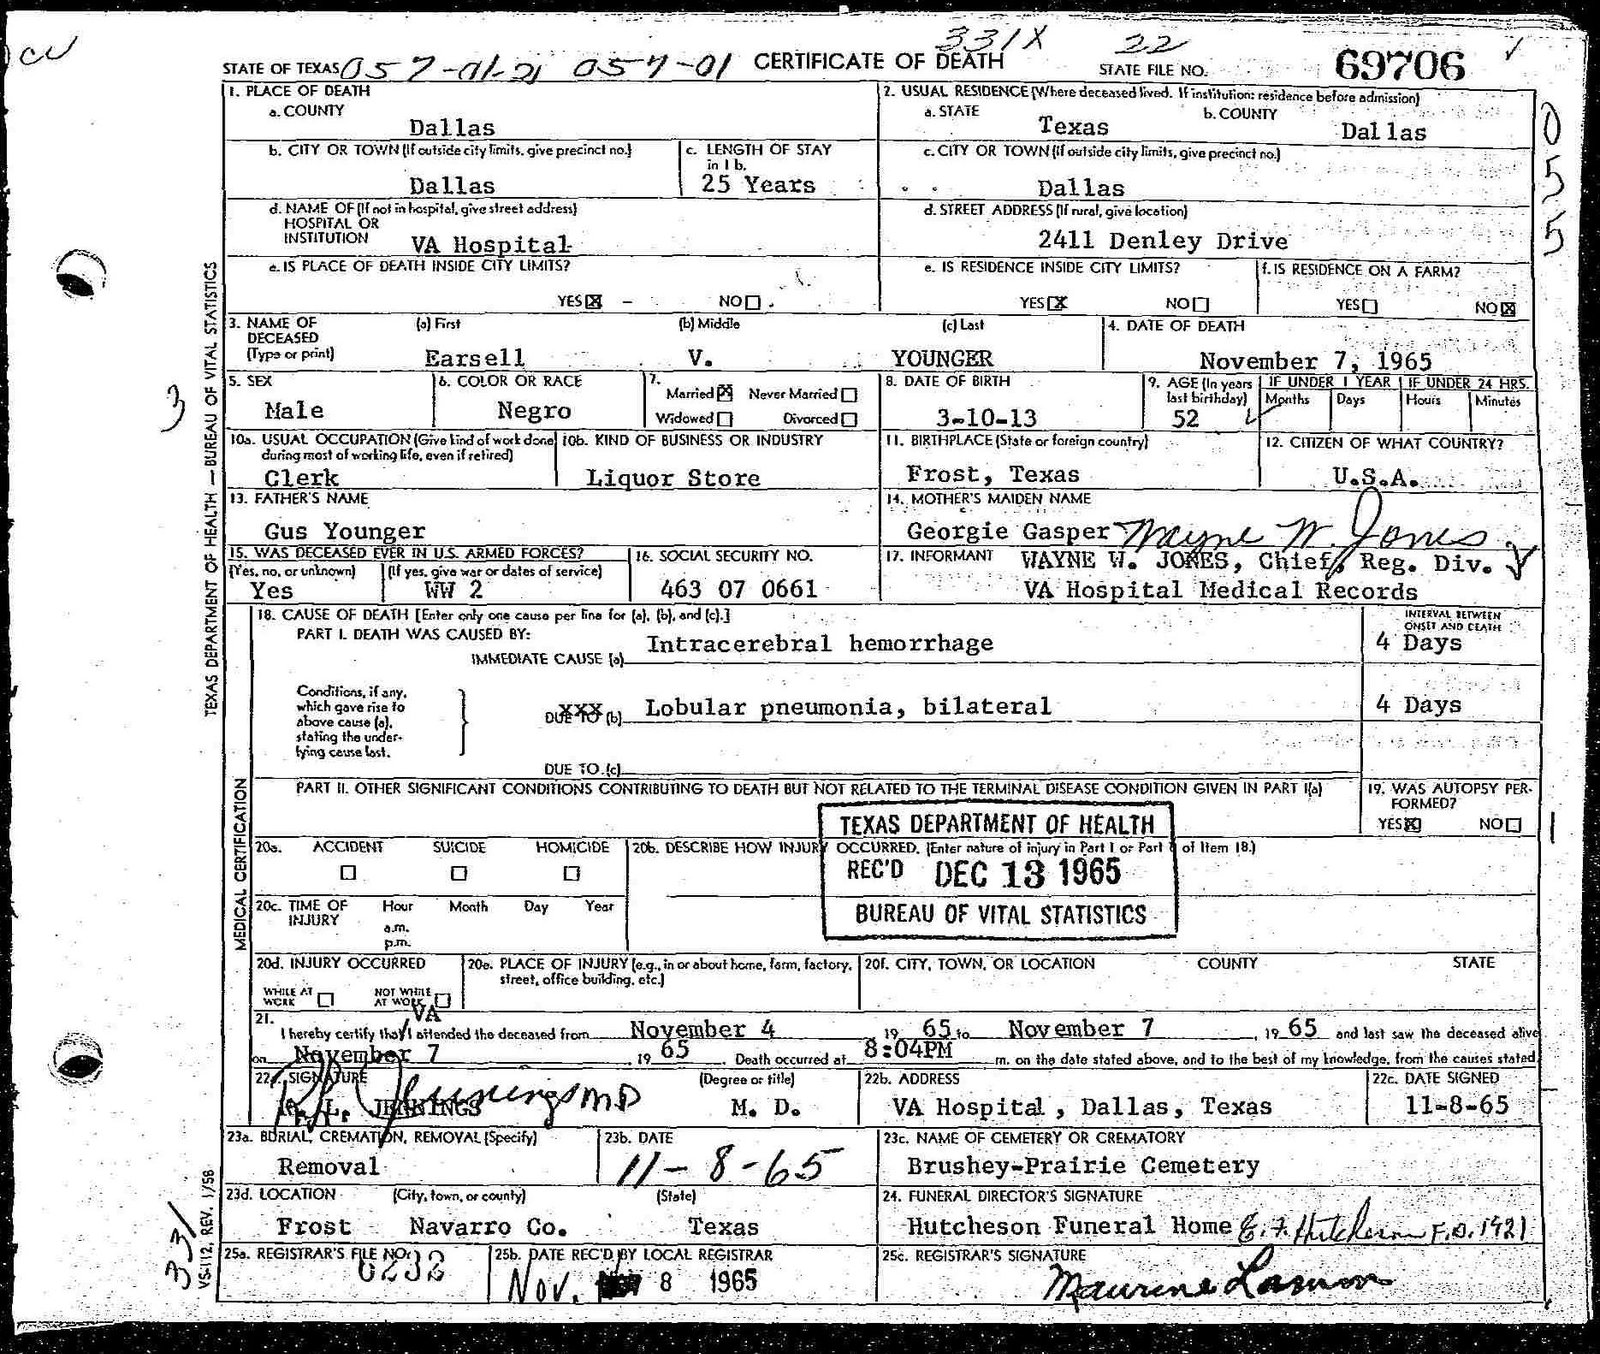 CW
331X 22 ✓
STATE OF TEXAS 057-01-21 057-01 CERTIFICATE OF DEATH STATE FILE NO. 69706
1. PLACE OF DEATH
a. COUNTY
Dallas
2. USUAL RESIDENCE (Where deceased lived. If institution: residence before admission)
a. STATE b. COUNTY
Texas Dallas
055
b. CITY OR TOWN (If outside city limits, give precinct no.)
Dallas
c. LENGTH OF STAY
in 1 b.
25 Years
c. CITY OR TOWN (If outside city limits, give precinct no.)
Dallas
d. NAME OF (If not in hospital, give street address)
HOSPITAL OR
INSTITUTION VA Hospital
d. STREET ADDRESS (If rural, give location)
2411 Denley Drive
e. IS PLACE OF DEATH INSIDE CITY LIMITS?
YES☒ NO☐
e. IS RESIDENCE INSIDE CITY LIMITS?
YES☒ NO☐
f. IS RESIDENCE ON A FARM?
YES☐ NO☒
3. NAME OF (a) First (b) Middle (c) Last
DECEASED
(Type or print) Earsell V. YOUNGER
4. DATE OF DEATH
November 7, 1965
5. SEX
Male
6. COLOR OR RACE
Negro
7.
Married☒ Never Married☐
Widowed☐ Divorced☐
8. DATE OF BIRTH
3-10-13
9. AGE (In years
last birthday)
52
IF UNDER 1 YEAR IF UNDER 24 HRS.
Months Days Hours Minutes
3
10a. USUAL OCCUPATION (Give kind of work done
during most of working life, even if retired)
Clerk
10b. KIND OF BUSINESS OR INDUSTRY
Liquor Store
11. BIRTHPLACE (State or foreign country)
Frost, Texas
12. CITIZEN OF WHAT COUNTRY?
U.S.A.
13. FATHER'S NAME
Gus Younger
14. MOTHER'S MAIDEN NAME
Georgie Gasper Wayne W. Jones
15. WAS DECEASED EVER IN U.S. ARMED FORCES?
(Yes, no, or unknown) (If yes, give war or dates of service)
Yes WW 2
16. SOCIAL SECURITY NO.
463 07 0661
17. INFORMANT WAYNE W. JONES, Chief, Reg. Div.
VA Hospital Medical Records
TEXAS DEPARTMENT OF HEALTH — BUREAU OF VITAL STATISTICS
MEDICAL CERTIFICATION
18. CAUSE OF DEATH [Enter only one cause per line for (a), (b), and (c).]
PART I. DEATH WAS CAUSED BY:
IMMEDIATE CAUSE (a) Intracerebral hemorrhage
INTERVAL BETWEEN
ONSET AND DEATH
4 Days
Conditions, if any,
which gave rise to
above cause (a),
stating the under-
lying cause last.
XXX
DUE TO (b) Lobular pneumonia, bilateral
4 Days
DUE TO (c)
PART II. OTHER SIGNIFICANT CONDITIONS CONTRIBUTING TO DEATH BUT NOT RELATED TO THE TERMINAL DISEASE CONDITION GIVEN IN PART I(a)
19. WAS AUTOPSY PER-
FORMED?
YES☒ NO☐
1
TEXAS DEPARTMENT OF HEALTH
REC'D DEC 13 1965
BUREAU OF VITAL STATISTICS
20a. ACCIDENT SUICIDE HOMICIDE
☐ ☐ ☐
20b. DESCRIBE HOW INJURY OCCURRED. (Enter nature of injury in Part I or Part of Item 18.)
20c. TIME OF Hour Month Day Year
INJURY a.m.
p.m.
20d. INJURY OCCURRED
WHILE AT WORK ☐ NOT WHILE AT WORK ☐
20e. PLACE OF INJURY (e.g., in or about home, farm, factory,
street, office building, etc.)
20f. CITY, TOWN, OR LOCATION COUNTY STATE
VA
21. I hereby certify that I attended the deceased from November 4 1965 to November 7, 1965 and last saw the deceased alive
on November 7 1965. Death occurred at 8:04PM m. on the date stated above, and to the best of my knowledge, from the causes stated
22a. SIGNATURE (Degree or title)
R. L. JENNINGS M. D.
R L Jennings MD
22b. ADDRESS
VA Hospital, Dallas, Texas
22c. DATE SIGNED
11-8-65
23a. BURIAL, CREMATION, REMOVAL (Specify)
Removal
23b. DATE
11-8-65
23c. NAME OF CEMETERY OR CREMATORY
Brushey-Prairie Cemetery
23d. LOCATION (City, town, or county) (State)
Frost Navarro Co. Texas
24. FUNERAL DIRECTOR'S SIGNATURE
Hutcheson Funeral Home E. F. Hutcheson F.D. 1421
25a. REGISTRAR'S FILE NO.
6232
25b. DATE REC'D BY LOCAL REGISTRAR
Nov. 8 1965
25c. REGISTRAR'S SIGNATURE
Maurine
331
VS-112, REV. 1/58